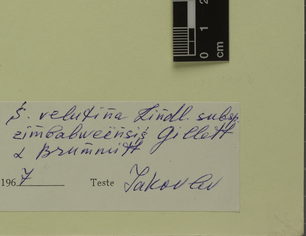 0 1 2
cm
S. velutina Lindl. subsp.
zimbabweënsis Gillett
& Brummitt
1967 Teste Jakovlev